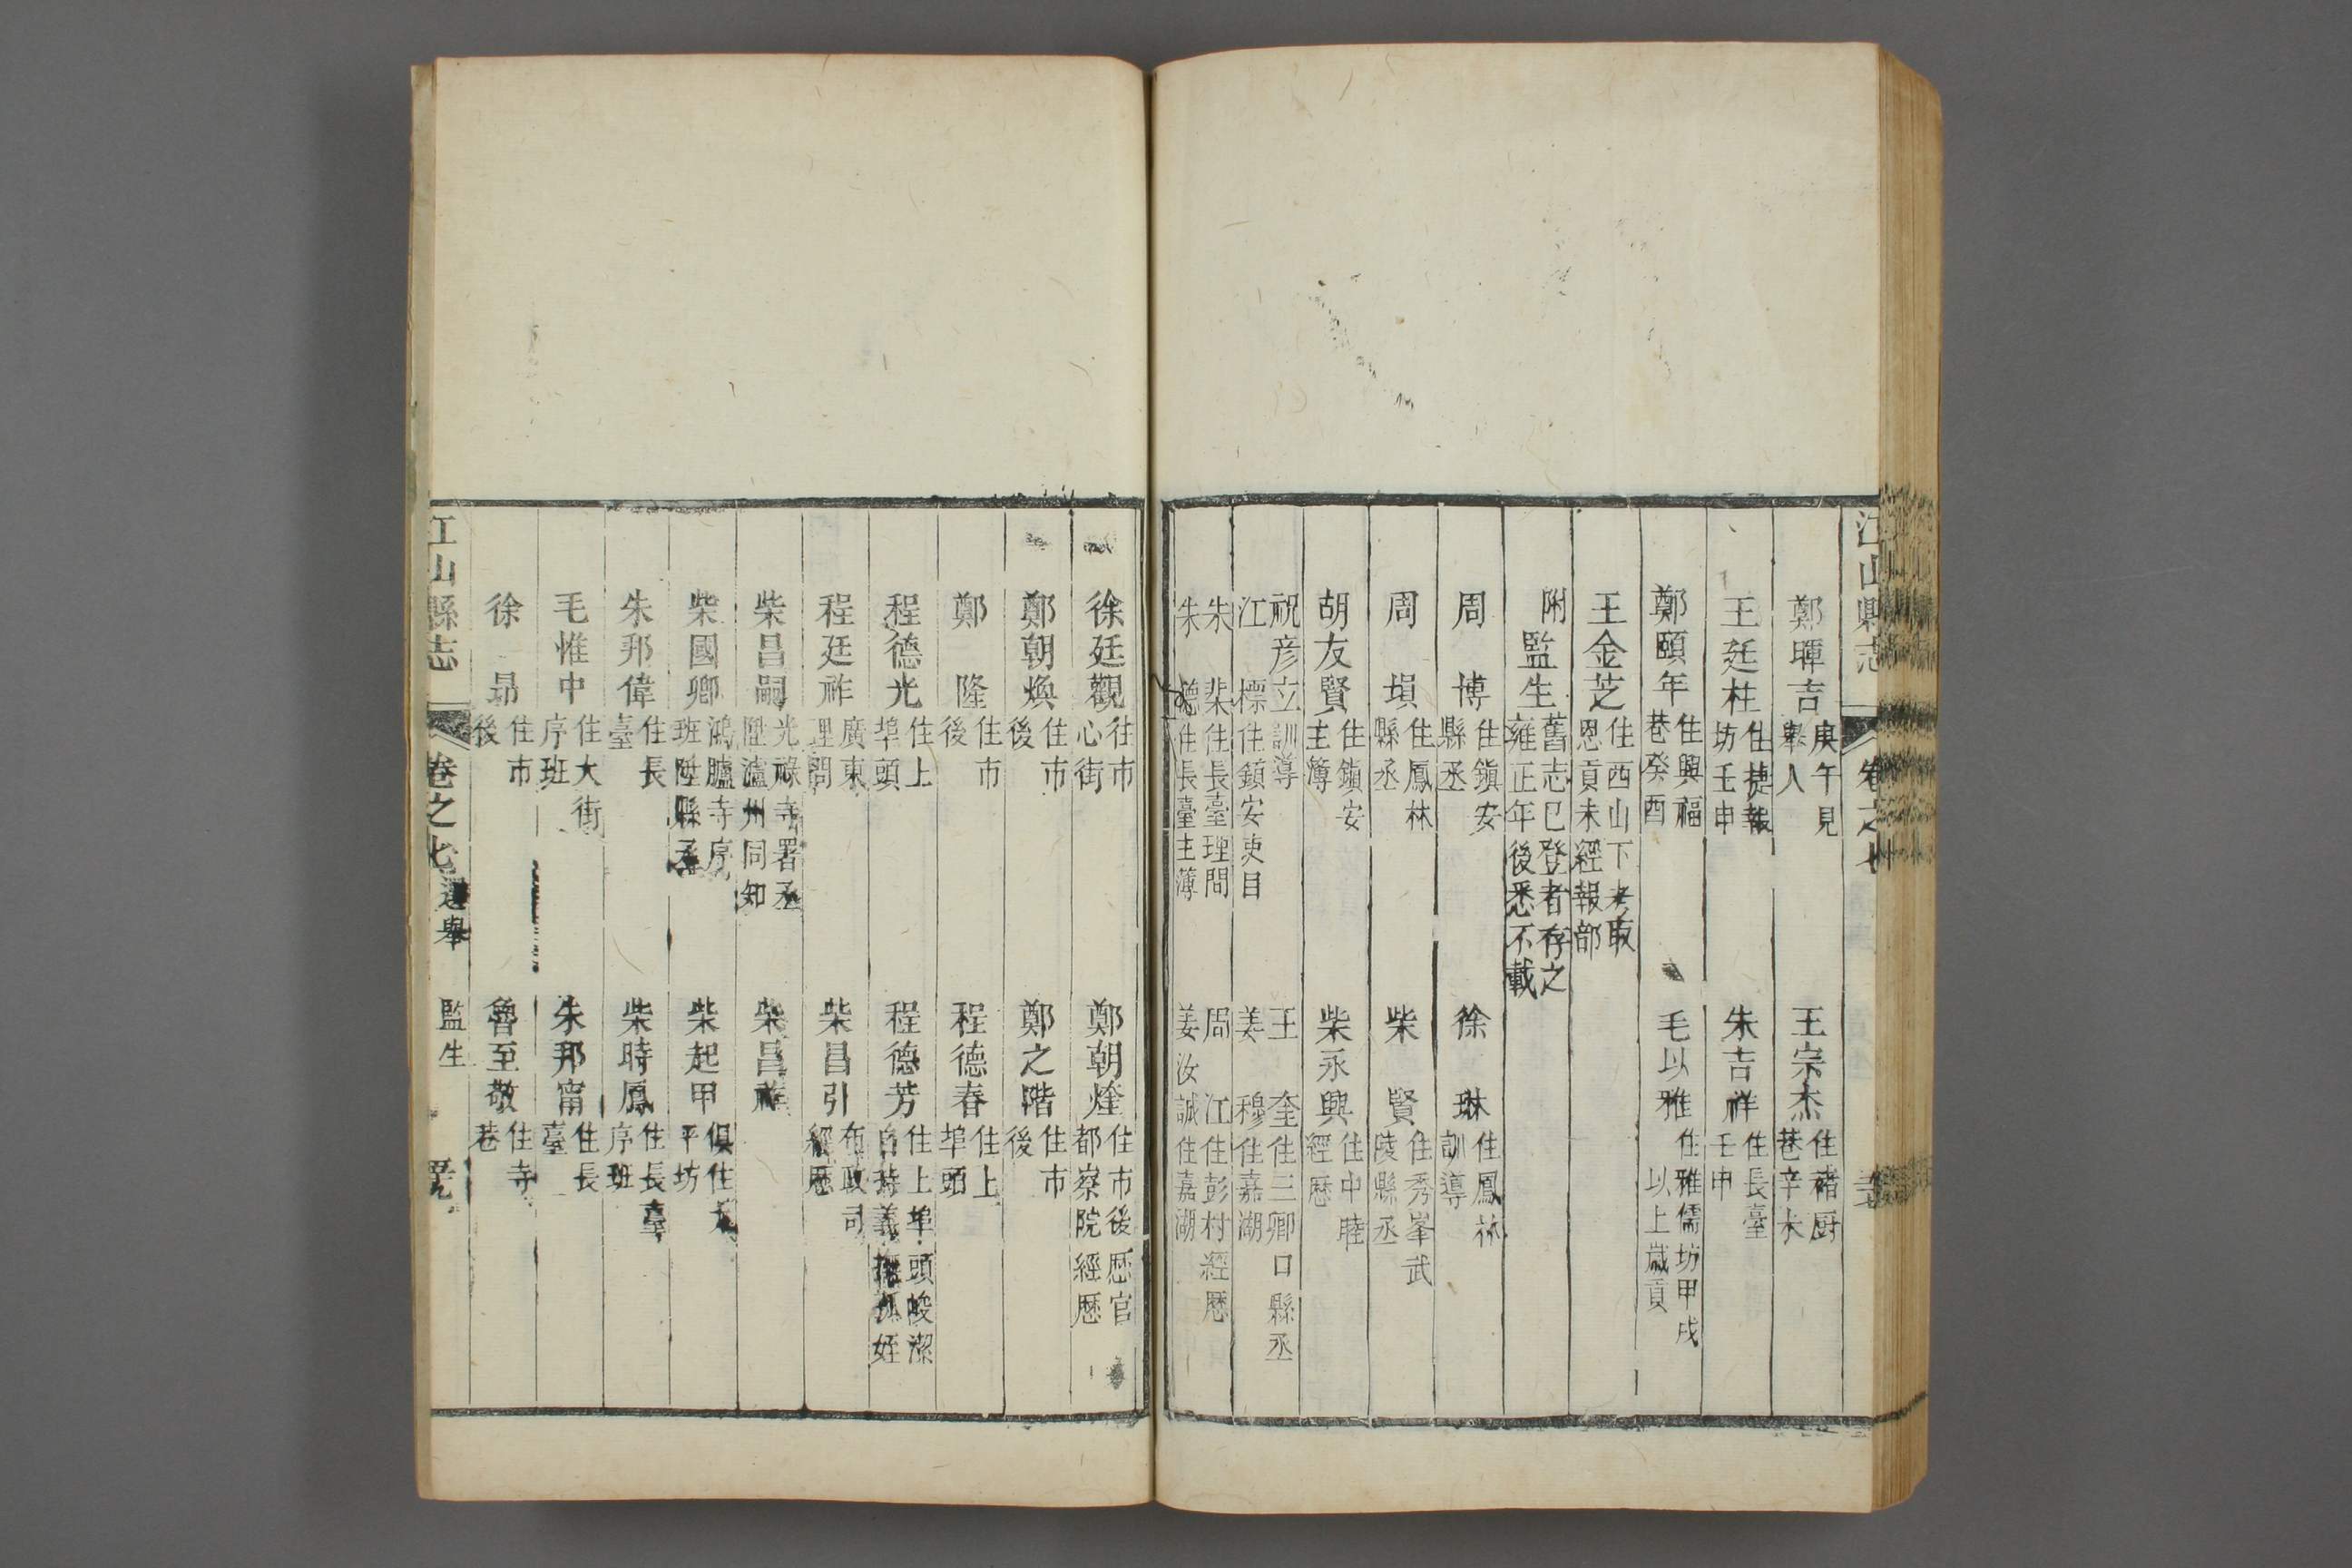 江山縣志 卷之七
鄭暉吉 庚午見舉人 王宗杰 住褚厨巷辛未
王廷柱 住捷報坊壬申 朱吉祥 住長臺壬申
鄭頤年 住興福巷癸酉 毛以雅 住雅儒坊甲戌 以上歲貢
王金芝 住西山下考取恩貢未經報部
附監生 舊志已登者存之雍正年後悉不載
周博 住鎭安縣丞 徐琳 住鳳林訓導
周塤 住鳳林縣丞 柴賢 住秀峯武陵縣丞
胡友賢 住鎭安主簿 柴永興 住中睦經歷
祝彦立 訓導 王奎 住三卿口縣丞
江標 住鎭安吏目 姜穆 住嘉湖
朱棐 住長臺理問 周江 住彭村經歷
朱德 住長臺主薄 姜汝誠 住嘉湖
徐廷觀 住市心街 鄭朝煃 住市後歷官都察院經歷
鄭朝煥 住市後 鄭之階 住市後
鄭隆 住市後 程德春 住上埠頭
程德光 住上埠頭 程德芳 住上埠頭峻潔自持義撫孤姪
程廷祚 廣東理問 柴昌引 布政司經歷
柴昌嗣 光祿寺署丞陞瀘州同知 柴昌
柴國卿 鴻臚寺序班陞縣丞 柴起甲 俱住太平坊
朱邦偉 住長臺 柴時鳳 住長臺序班
毛惟中 住大街序班 朱邦甯 住長臺
徐昂 住市後 魯至敬 住寺巷
江山縣志 卷之七 選舉 監生